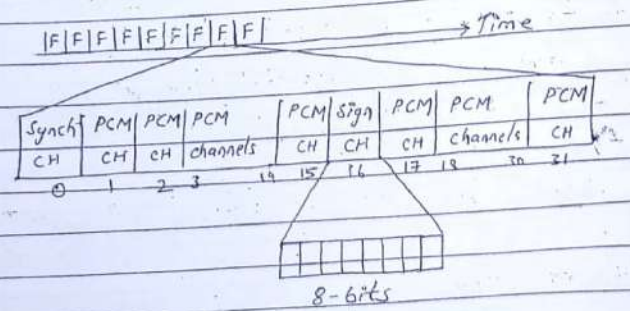 |F|F|F|F|F|F|F|F|F| → Time
Synch PCM PCM PCM PCM Sign PCM PCM PCM
CH CH CH channels CH CH CH channels CH
0 1 2 3 14 15 16 17 18 30 31
8-bits